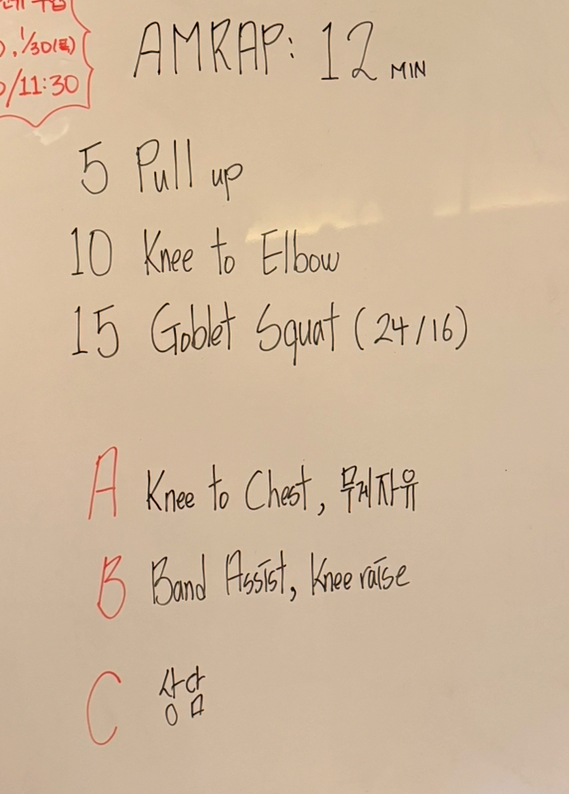 1/30(토)
/11:30
AMRAP: 12 MIN
5 Pull up
10 Knee to Elbow
15 Goblet Squat (24/16)
A Knee to Chest, 무게자유
B Band Assist, Knee raise
C 상담